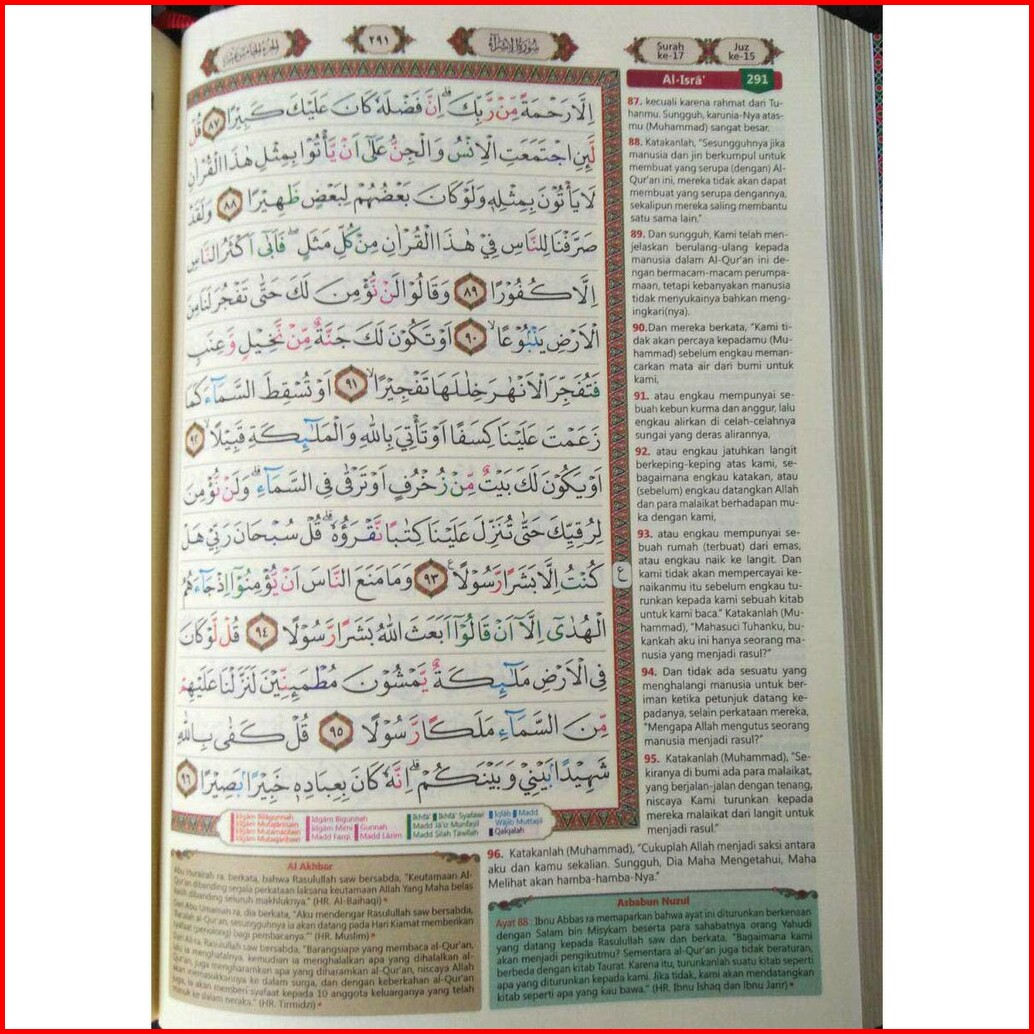 الجزء الخامس عشر
٢٩١
سورة الإسراء
Surah ke-17
Juz ke-15
Al-Isrā'
291
اِلَّا رَحْمَةً مِّنْ رَّبِّكَۗ اِنَّ فَضْلَهٗ كَانَ عَلَيْكَ كَبِيْرًا ٨٧ قُلْ
لَّىِٕنِ اجْتَمَعَتِ الْاِنْسُ وَالْجِنُّ عَلٰٓى اَنْ يَّأْتُوْا بِمِثْلِ هٰذَا الْقُرْاٰنِ
لَا يَأْتُوْنَ بِمِثْلِهٖ وَلَوْ كَانَ بَعْضُهُمْ لِبَعْضٍ ظَهِيْرًا ٨٨ وَلَقَدْ
صَرَّفْنَا لِلنَّاسِ فِيْ هٰذَا الْقُرْاٰنِ مِنْ كُلِّ مَثَلٍۖ فَاَبٰٓى اَكْثَرُ النَّاسِ
اِلَّا كُفُوْرًا ٨٩ وَقَالُوْا لَنْ نُّؤْمِنَ لَكَ حَتّٰى تَفْجُرَ لَنَا مِنَ
الْاَرْضِ يَنْۢبُوْعًاۙ ٩٠ اَوْ تَكُوْنَ لَكَ جَنَّةٌ مِّنْ نَّخِيْلٍ وَّعِنَبٍ
فَتُفَجِّرَ الْاَنْهٰرَ خِلٰلَهَا تَفْجِيْرًاۙ ٩١ اَوْ تُسْقِطَ السَّمَاۤءَ كَمَا
زَعَمْتَ عَلَيْنَا كِسَفًا اَوْ تَأْتِيَ بِاللّٰهِ وَالْمَلٰۤىِٕكَةِ قَبِيْلًاۙ ٩٢
اَوْ يَكُوْنَ لَكَ بَيْتٌ مِّنْ زُخْرُفٍ اَوْ تَرْقٰى فِى السَّمَاۤءِۗ وَلَنْ نُّؤْمِنَ
لِرُقِيِّكَ حَتّٰى تُنَزِّلَ عَلَيْنَا كِتٰبًا نَّقْرَؤُهٗۗ قُلْ سُبْحَانَ رَبِّيْ هَلْ
كُنْتُ اِلَّا بَشَرًا رَّسُوْلًا ٩٣ وَمَا مَنَعَ النَّاسَ اَنْ يُّؤْمِنُوْٓا اِذْ جَاۤءَهُمُ
الْهُدٰٓى اِلَّآ اَنْ قَالُوْٓا اَبَعَثَ اللّٰهُ بَشَرًا رَّسُوْلًا ٩٤ قُلْ لَّوْ كَانَ
فِى الْاَرْضِ مَلٰۤىِٕكَةٌ يَّمْشُوْنَ مُطْمَىِٕنِّيْنَ لَنَزَّلْنَا عَلَيْهِمْ
مِّنَ السَّمَاۤءِ مَلَكًا رَّسُوْلًا ٩٥ قُلْ كَفٰى بِاللّٰهِ
شَهِيْدًاۢ بَيْنِيْ وَبَيْنَكُمْۗ اِنَّهٗ كَانَ بِعِبَادِهٖ خَبِيْرًاۢ بَصِيْرًا ٩٦
ع
87. kecuali karena rahmat dari Tu-
hanmu. Sungguh, karunia-Nya atas-
mu (Muhammad) sangat besar.
88. Katakanlah, "Sesungguhnya jika
manusia dan jin berkumpul untuk
membuat yang serupa (dengan) Al-
Qur'an ini, mereka tidak akan dapat
membuat yang serupa dengannya,
sekalipun mereka saling membantu
satu sama lain."
89. Dan sungguh, Kami telah men-
jelaskan berulang-ulang kepada
manusia dalam Al-Qur'an ini de-
ngan bermacam-macam perumpa-
maan, tetapi kebanyakan manusia
tidak menyukainya bahkan meng-
ingkari(nya).
90.Dan mereka berkata, "Kami ti-
dak akan percaya kepadamu (Mu-
hammad) sebelum engkau meman-
carkan mata air dari bumi untuk
kami,
91. atau engkau mempunyai se-
buah kebun kurma dan anggur, lalu
engkau alirkan di celah-celahnya
sungai yang deras alirannya,
92. atau engkau jatuhkan langit
berkeping-keping atas kami, se-
bagaimana engkau katakan, atau
(sebelum) engkau datangkan Allah
dan para malaikat berhadapan mu-
ka dengan kami,
93. atau engkau mempunyai se-
buah rumah (terbuat) dari emas,
atau engkau naik ke langit. Dan
kami tidak akan mempercayai ke-
naikanmu itu sebelum engkau tu-
runkan kepada kami sebuah kitab
untuk kami baca." Katakanlah (Mu-
hammad), "Mahasuci Tuhanku, bu-
kankah aku ini hanya seorang ma-
nusia yang menjadi rasul?"
94. Dan tidak ada sesuatu yang
menghalangi manusia untuk ber-
iman ketika petunjuk datang ke-
padanya, selain perkataan mereka,
"Mengapa Allah mengutus seorang
manusia menjadi rasul?"
95. Katakanlah (Muhammad), "Se-
kiranya di bumi ada para malaikat,
yang berjalan-jalan dengan tenang,
niscaya Kami turunkan kepada
mereka malaikat dari langit untuk
menjadi rasul."
96. Katakanlah (Muhammad), "Cukuplah Allah menjadi saksi antara
aku dan kamu sekalian. Sungguh, Dia Maha Mengetahui, Maha
Melihat akan hamba-hamba-Nya."
Idgām Bilāgunnah
Idgām Mutajānisain
Idgām Mutamāṡilain
Idgām Mutaqāribain
Idgām Bigunnah
Idgām Mimi Gunnah
Madd Farqi Madd Lāzim
Ikhfā' Ikhfā' Syafawi
Madd Jā'iz Munfaṣil
Madd Ṣilah Ṭawīlah
Iqlāb Madd
Wājib Muttaṣil
Qalqalah
Al Akhbar
Abu Hurairah ra. berkata, bahwa Rasulullah saw bersabda, "Keutamaan Al-
Qur'an dibanding segala perkataan laksana keutamaan Allah Yang Maha belas
kasih dibanding seluruh makhluknya." (HR. Al-Baihaqi)
Dari Abu Umamah ra, dia berkata, "Aku mendengar Rasulullah saw bersabda,
'Bacalah al-Qur'an, sesungguhnya ia akan datang pada Hari Kiamat memberikan
syafaat (penolong) bagi pembacanya.'" (HR. Muslim)
Dari Ali ra. Rasulullah saw bersabda, "Barangsiapa yang membaca al-Qur'an,
lalu ia menghafalnya, kemudian ia menghalalkan apa yang dihalalkan al-
Qur'an, juga mengharamkan apa yang diharamkan al-Qur'an, niscaya Allah
akan memasukkannya ke dalam surga, dan dengan keberkahan al-Qur'an
ia akan memberi syafaat kepada 10 anggota keluarganya yang telah
masuk ke dalam neraka." (HR. Tirmidzi)
Asbabun Nuzul
Ayat 88 : Ibnu Abbas ra memaparkan bahwa ayat ini diturunkan berkenaan
dengan Salam bin Misykam beserta para sahabatnya orang Yahudi
yang datang kepada Rasulullah saw dan berkata, "Bagaimana kami
akan menjadi pengikutmu? Sementara al-Qur'an juga tidak beraturan,
berbeda dengan kitab Taurat. Karena itu, turunkanlah suatu kitab seperti
apa yang diturunkan kepada kami. Jika tidak, kami akan mendatangkan
kitab seperti apa yang kau bawa." (HR. Ibnu Ishaq dan Ibnu Jarir)